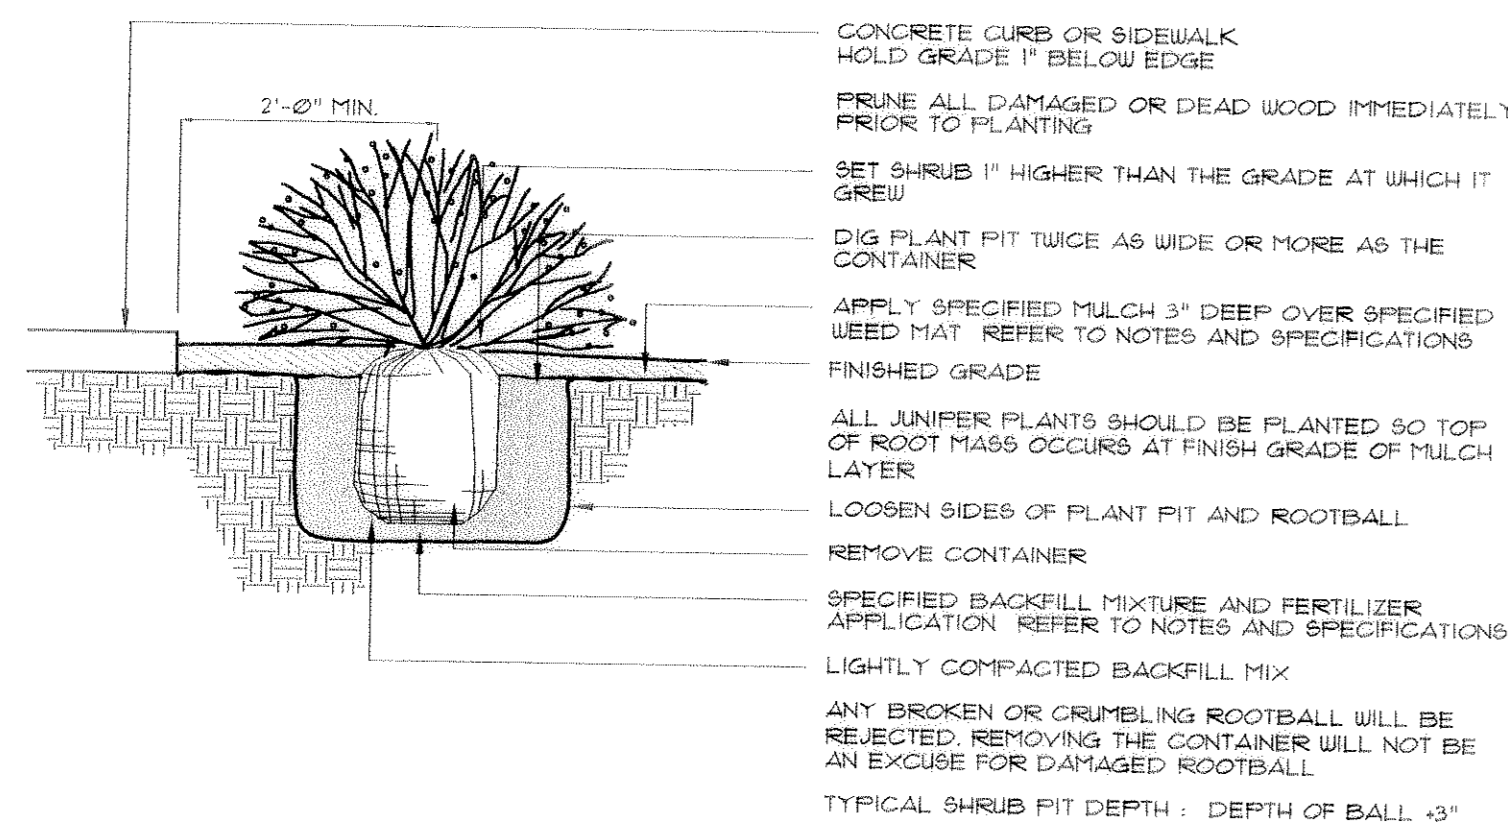 CONCRETE CURB OR SIDEWALK
HOLD GRADE 1" BELOW EDGE
2'-0" MIN.
PRUNE ALL DAMAGED OR DEAD WOOD IMMEDIATELY
PRIOR TO PLANTING
SET SHRUB 1" HIGHER THAN THE GRADE AT WHICH IT
GREW
DIG PLANT PIT TWICE AS WIDE OR MORE AS THE
CONTAINER
APPLY SPECIFIED MULCH 3" DEEP OVER SPECIFIED
WEED MAT REFER TO NOTES AND SPECIFICATIONS
FINISHED GRADE
ALL JUNIPER PLANTS SHOULD BE PLANTED SO TOP
OF ROOT MASS OCCURS AT FINISH GRADE OF MULCH
LAYER
LOOSEN SIDES OF PLANT PIT AND ROOTBALL
REMOVE CONTAINER
SPECIFIED BACKFILL MIXTURE AND FERTILIZER
APPLICATION REFER TO NOTES AND SPECIFICATIONS
LIGHTLY COMPACTED BACKFILL MIX
ANY BROKEN OR CRUMBLING ROOTBALL WILL BE
REJECTED. REMOVING THE CONTAINER WILL NOT BE
AN EXCUSE FOR DAMAGED ROOTBALL
TYPICAL SHRUB PIT DEPTH : DEPTH OF BALL +3"